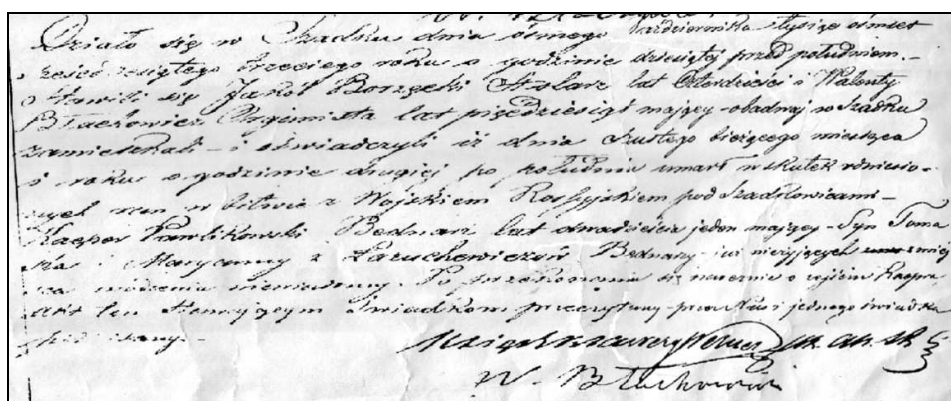 Działo się w Szadku dnia ósmego Października tysiąc ośmset
sześćdziesiątego trzeciego roku o godzinie dziesiątej przed południem.
Stawili się Jakób Borzęcki Stolarz lat Czterdzieści i Walenty
Błachowicz Organista lat pięćdziesiąt mający obadwaj w Szadku
zamieszkali – i oświadczyli iż dnia szóstego bieżącego miesiąca
i roku o godzinie drugiej po południu umarł wskutek odniesio-
nych ran w bitwie z Wojskiem Rossyjskiem pod Szadkowicami –
Kasper Pawlikowski Bednarz lat dwadzieścia jeden mający – Syn Toma
sza i Maryanny z Łazuchewiczów Bednarzy już nieżyjących
niewiadomy. Po przekonaniu się naocznie o zejściu Kaspra
akt ten Stawającym Świadkom przeczytany przez Nas i jednego świadka
podpisany.
W. Błachowicz